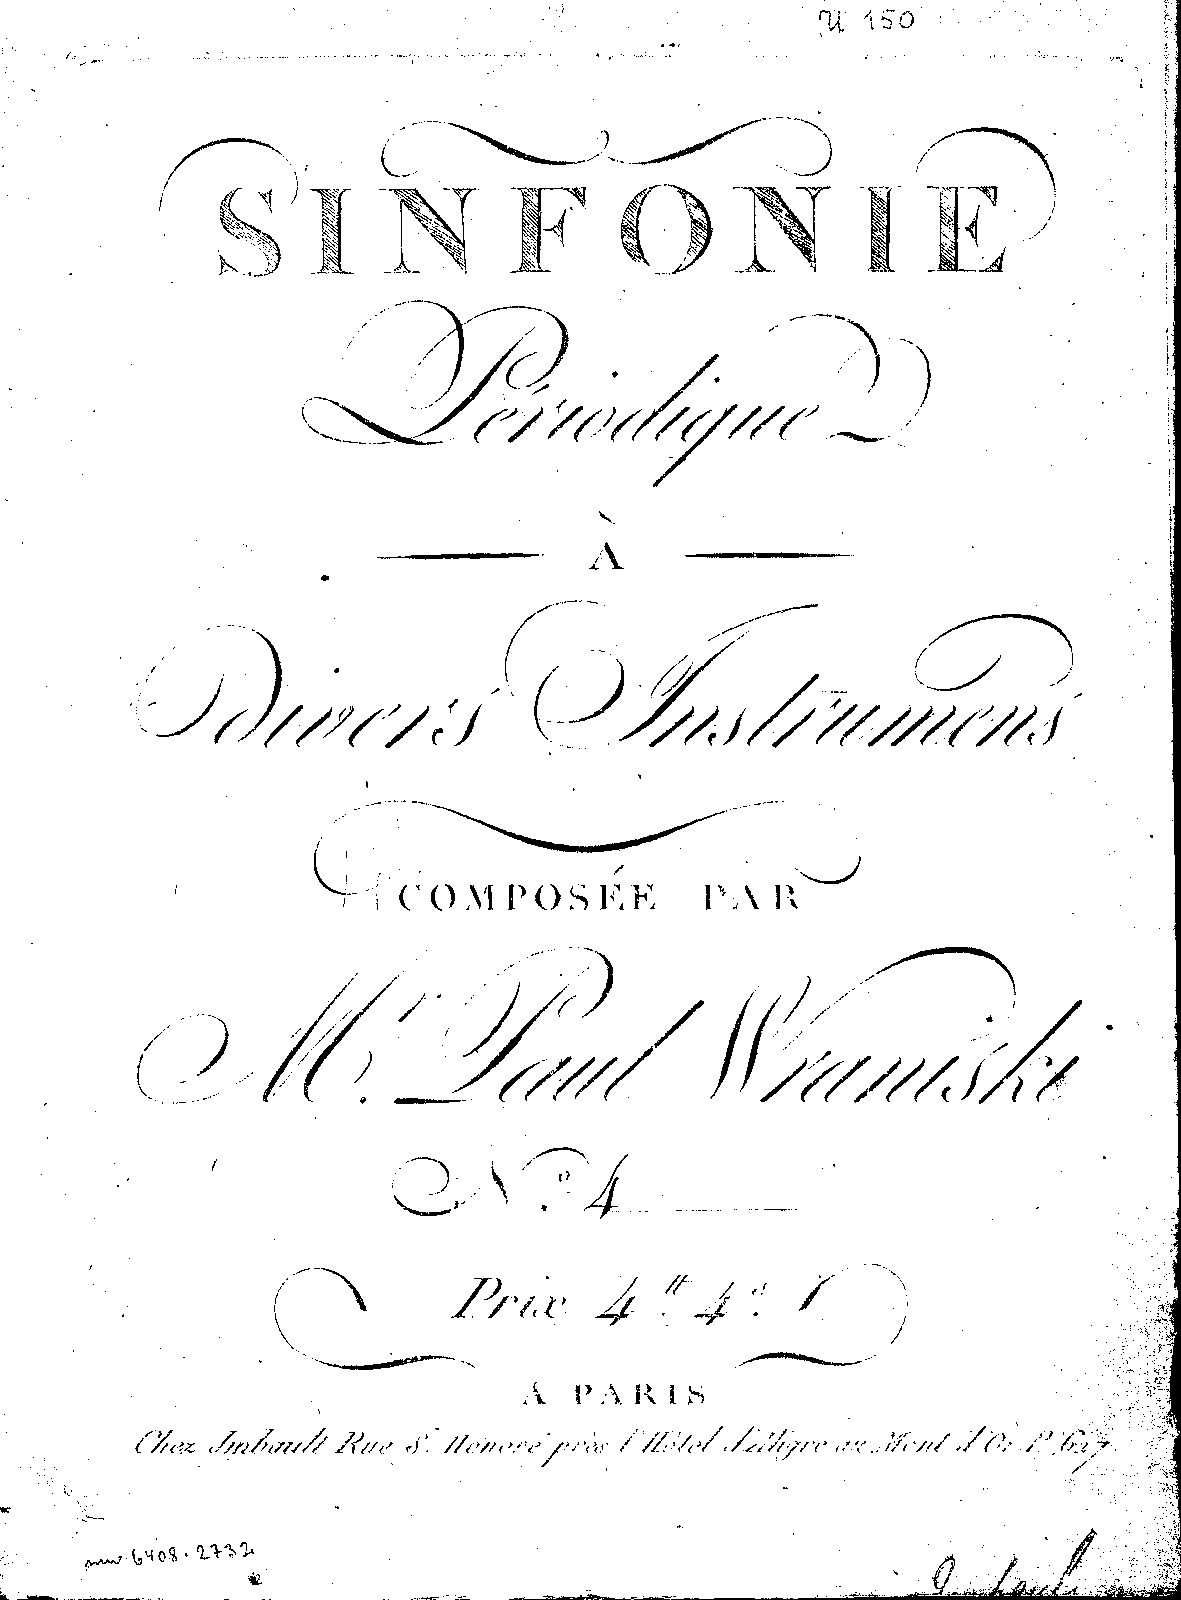 U 150
SINFONIE
Périodique
À
Divers Instrumens
COMPOSÉE PAR
Mr. Paul Wraniski
No. 4
Prix 4tt 4s.
A PARIS
Chez Imbault Rue St. Honoré près l'Hôtel d'Aligre au Mont d'Or No. 627
mw 6408.2732
Imbault